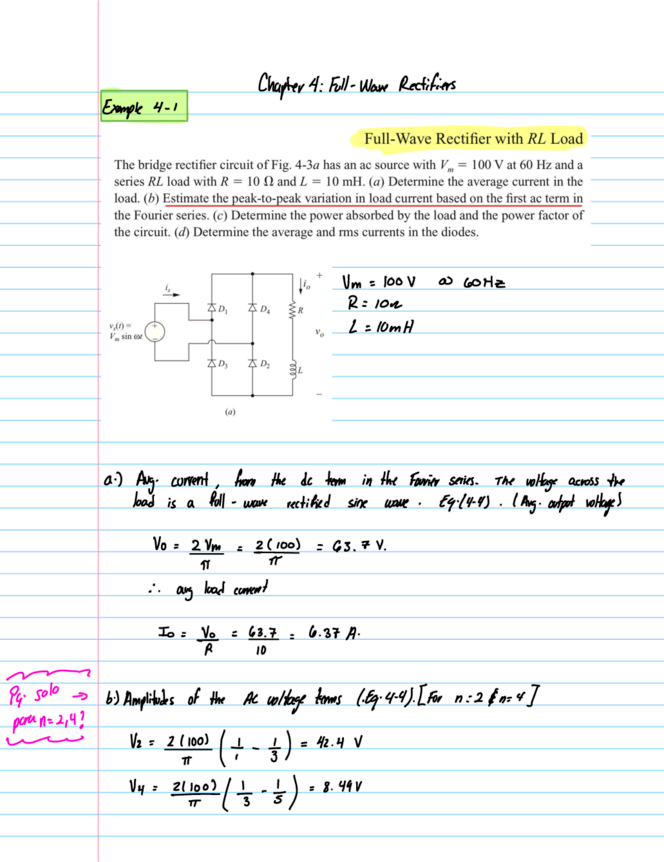 Chapter 4: Full-Wave Rectifiers
Example 4-1
Full-Wave Rectifier with RL Load
The bridge rectifier circuit of Fig. 4-3a has an ac source with Vm = 100 V at 60 Hz and a
series RL load with R = 10 Ω and L = 10 mH. (a) Determine the average current in the
load. (b) Estimate the peak-to-peak variation in load current based on the first ac term in
the Fourier series. (c) Determine the power absorbed by the load and the power factor of
the circuit. (d) Determine the average and rms currents in the diodes.
is
io
+
D1
D4
R
vs(t) =
Vm sin ωt
+
−
vo
D3
D2
L
−
(a)
Vm = 100 V @ 60Hz
R = 10Ω
L = 10mH
a.) Avg. current, from the dc term in the Fourier series. The voltage across the
load is a full-wave rectified sine wave. Eq.(4-4). (Avg. output voltage)
Vo = 2Vm/π = 2(100)/π = 63.7 V.
∴ avg load current
Io = Vo/R = 63.7/10 = 6.37 A.
Pq. solo →
para n=2,4?
b.) Amplitudes of the AC voltage terms (Eq. 4-4). [For n=2 & n=4]
V2 = 2(100)/π (1/1 - 1/3) = 42.4 V
V4 = 2(100)/π (1/3 - 1/5) = 8.49V